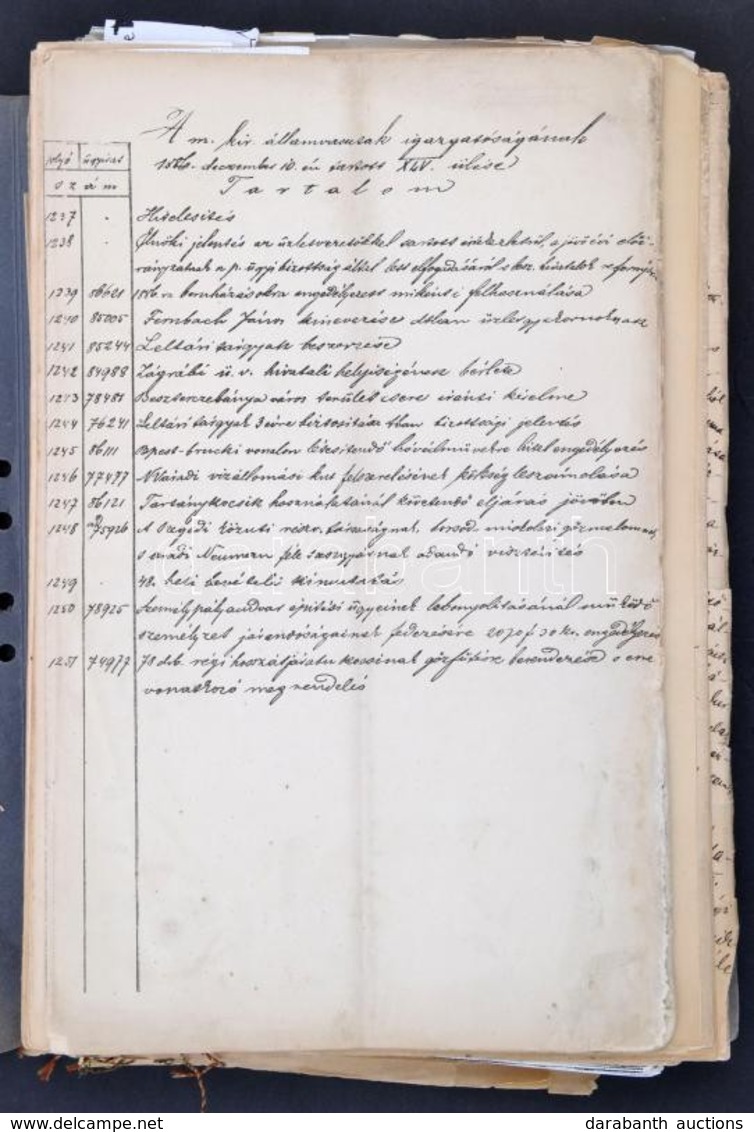 A m. kir. államvasutak igazgatóságának
1886. deczember 10. én tartott XLV. ülése
Tartalom
folyó ügyirat
szám
1237 . Hitelesítés
1238 . Elnöki jelentés az üzletvezetőkkel tartott értekezletről, a jövő évi elői-
rányzatnak a p. ügyi bizottság által lett elfogadásáról s hoz. hivatalok
1239 86621 1886 ra beruházásokra engedélyezett mikénti felhasználása
1240 85005 Fernbach János kinevezése dtlan üzletgyakornoknak
1241 85244 Leltári tárgyak beszerzése
1242 84988 Zágrábi ü. v. hivatali helyiségének bérlete
1243 78481 Beszterczebánya város terület csere iránti kérelme
1244 76241 Leltári tárgyak 3 évre biztosítása bizottsági jelentés
1245 86111 Bpest-brucki vonalon létesitendő hóvédművekre hitel engedélyezés
1246 77477 N.Váradi vizállomási kut felszerelésének költség leszámolása
1247 86121 Tartánykocsik használatánál követendő eljárás jövőben
1248 ad 75926 A Szegedi közuti társaságnak, borsod. miskolczi gőzmalomnak
s aradi Neumann féle szeszgyárnak adandó visztérítés
1249 . 48. heti bevételi kimutatás
1250 78925 Személypályaudvar építési ügyeinek lebonyolításánál működő
személyzet járandóságainak fedezésére 2070 f 30 kr. engedélyezés
1251 74977 78 drb. régi kocsinak gőzfűtésre berendezése s erre
vonatkozó megrendelés
darabanth
darabanth auctions